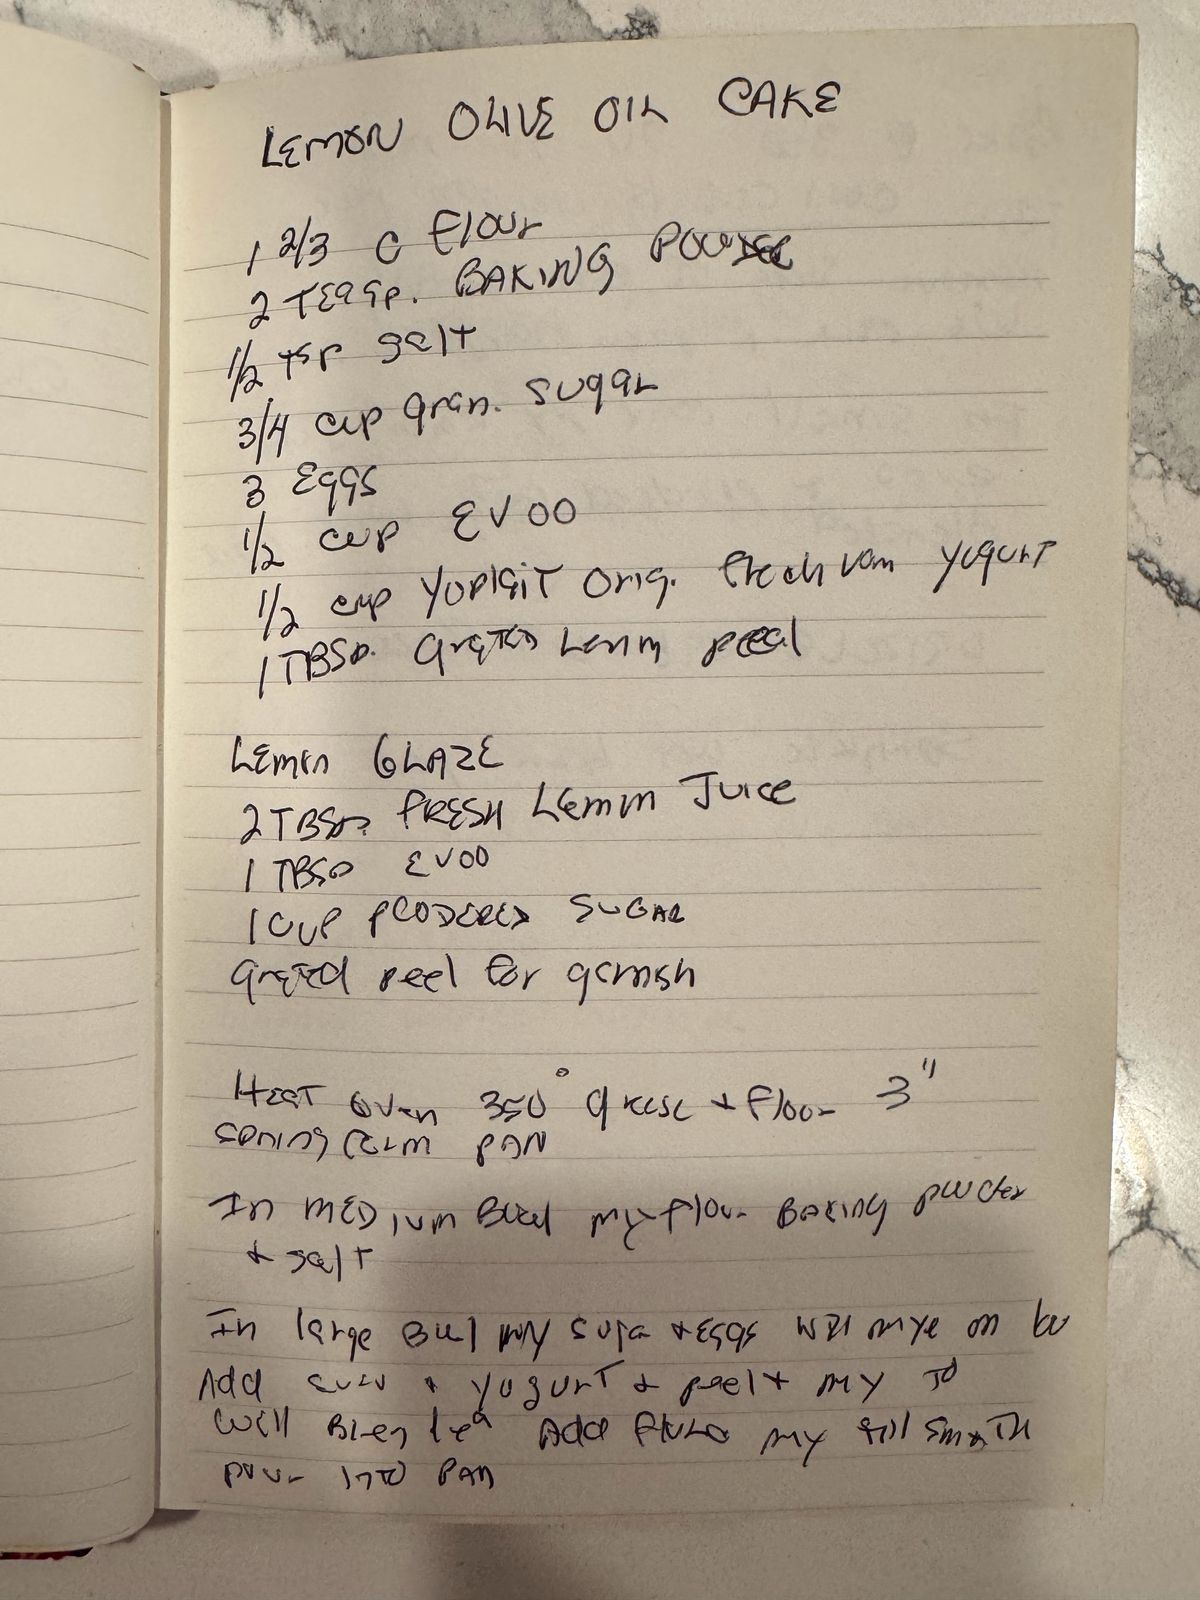 LEMON OLIVE OIL CAKE
1 2/3 C Flour
2 TEASP. BAKING POWDER
1/2 tsp salt
3/4 cup gran. sugar
3 Eggs
1/2 cup EVOO
1/2 cup YOPLAIT Orig. French van yogurt
1 TBSP. GRATED Lemon peel
Lemon GLAZE
2 TBSP. FRESH Lemon Juice
1 TBSP EVOO
1 CUP POODERED SUGAR
Grated peel for garnish
HEAT Oven 350° grease + flour 3"
Spring form PAN
In MEDIUM Bowl mix flour Baking powder
+ salt
In large Bowl mix sugar + Eggs with mixer on
Add EVOO + yogurt + peel + mix to
well Blended Add flour mix till smooth
pour into Pan